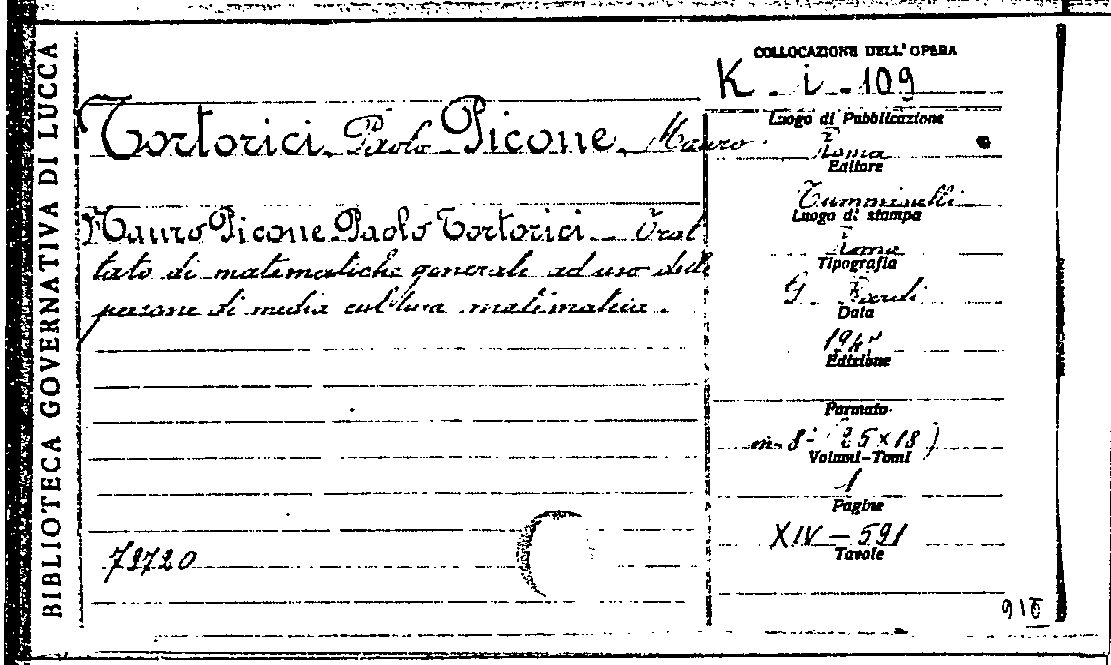 BIBLIOTECA GOVERNATIVA DI LUCCA
COLLOCAZIONE DELL'OPERA
K - i - 109
Tortorici Paolo Picone Mauro
Luogo di Pubblicazione
Roma
Editore
Tumminelli
Luogo di stampa
Roma
Tipografia
G.
Data
Edizione
Formato
in-8° (25×18)
Volumi-Tomi
1
Pagine
XIV - 591
Tavole
Mauro Picone Paolo Tortorici - Trat
tato di matematiche generale ad uso delle
persone di media cultura matematica.
72720